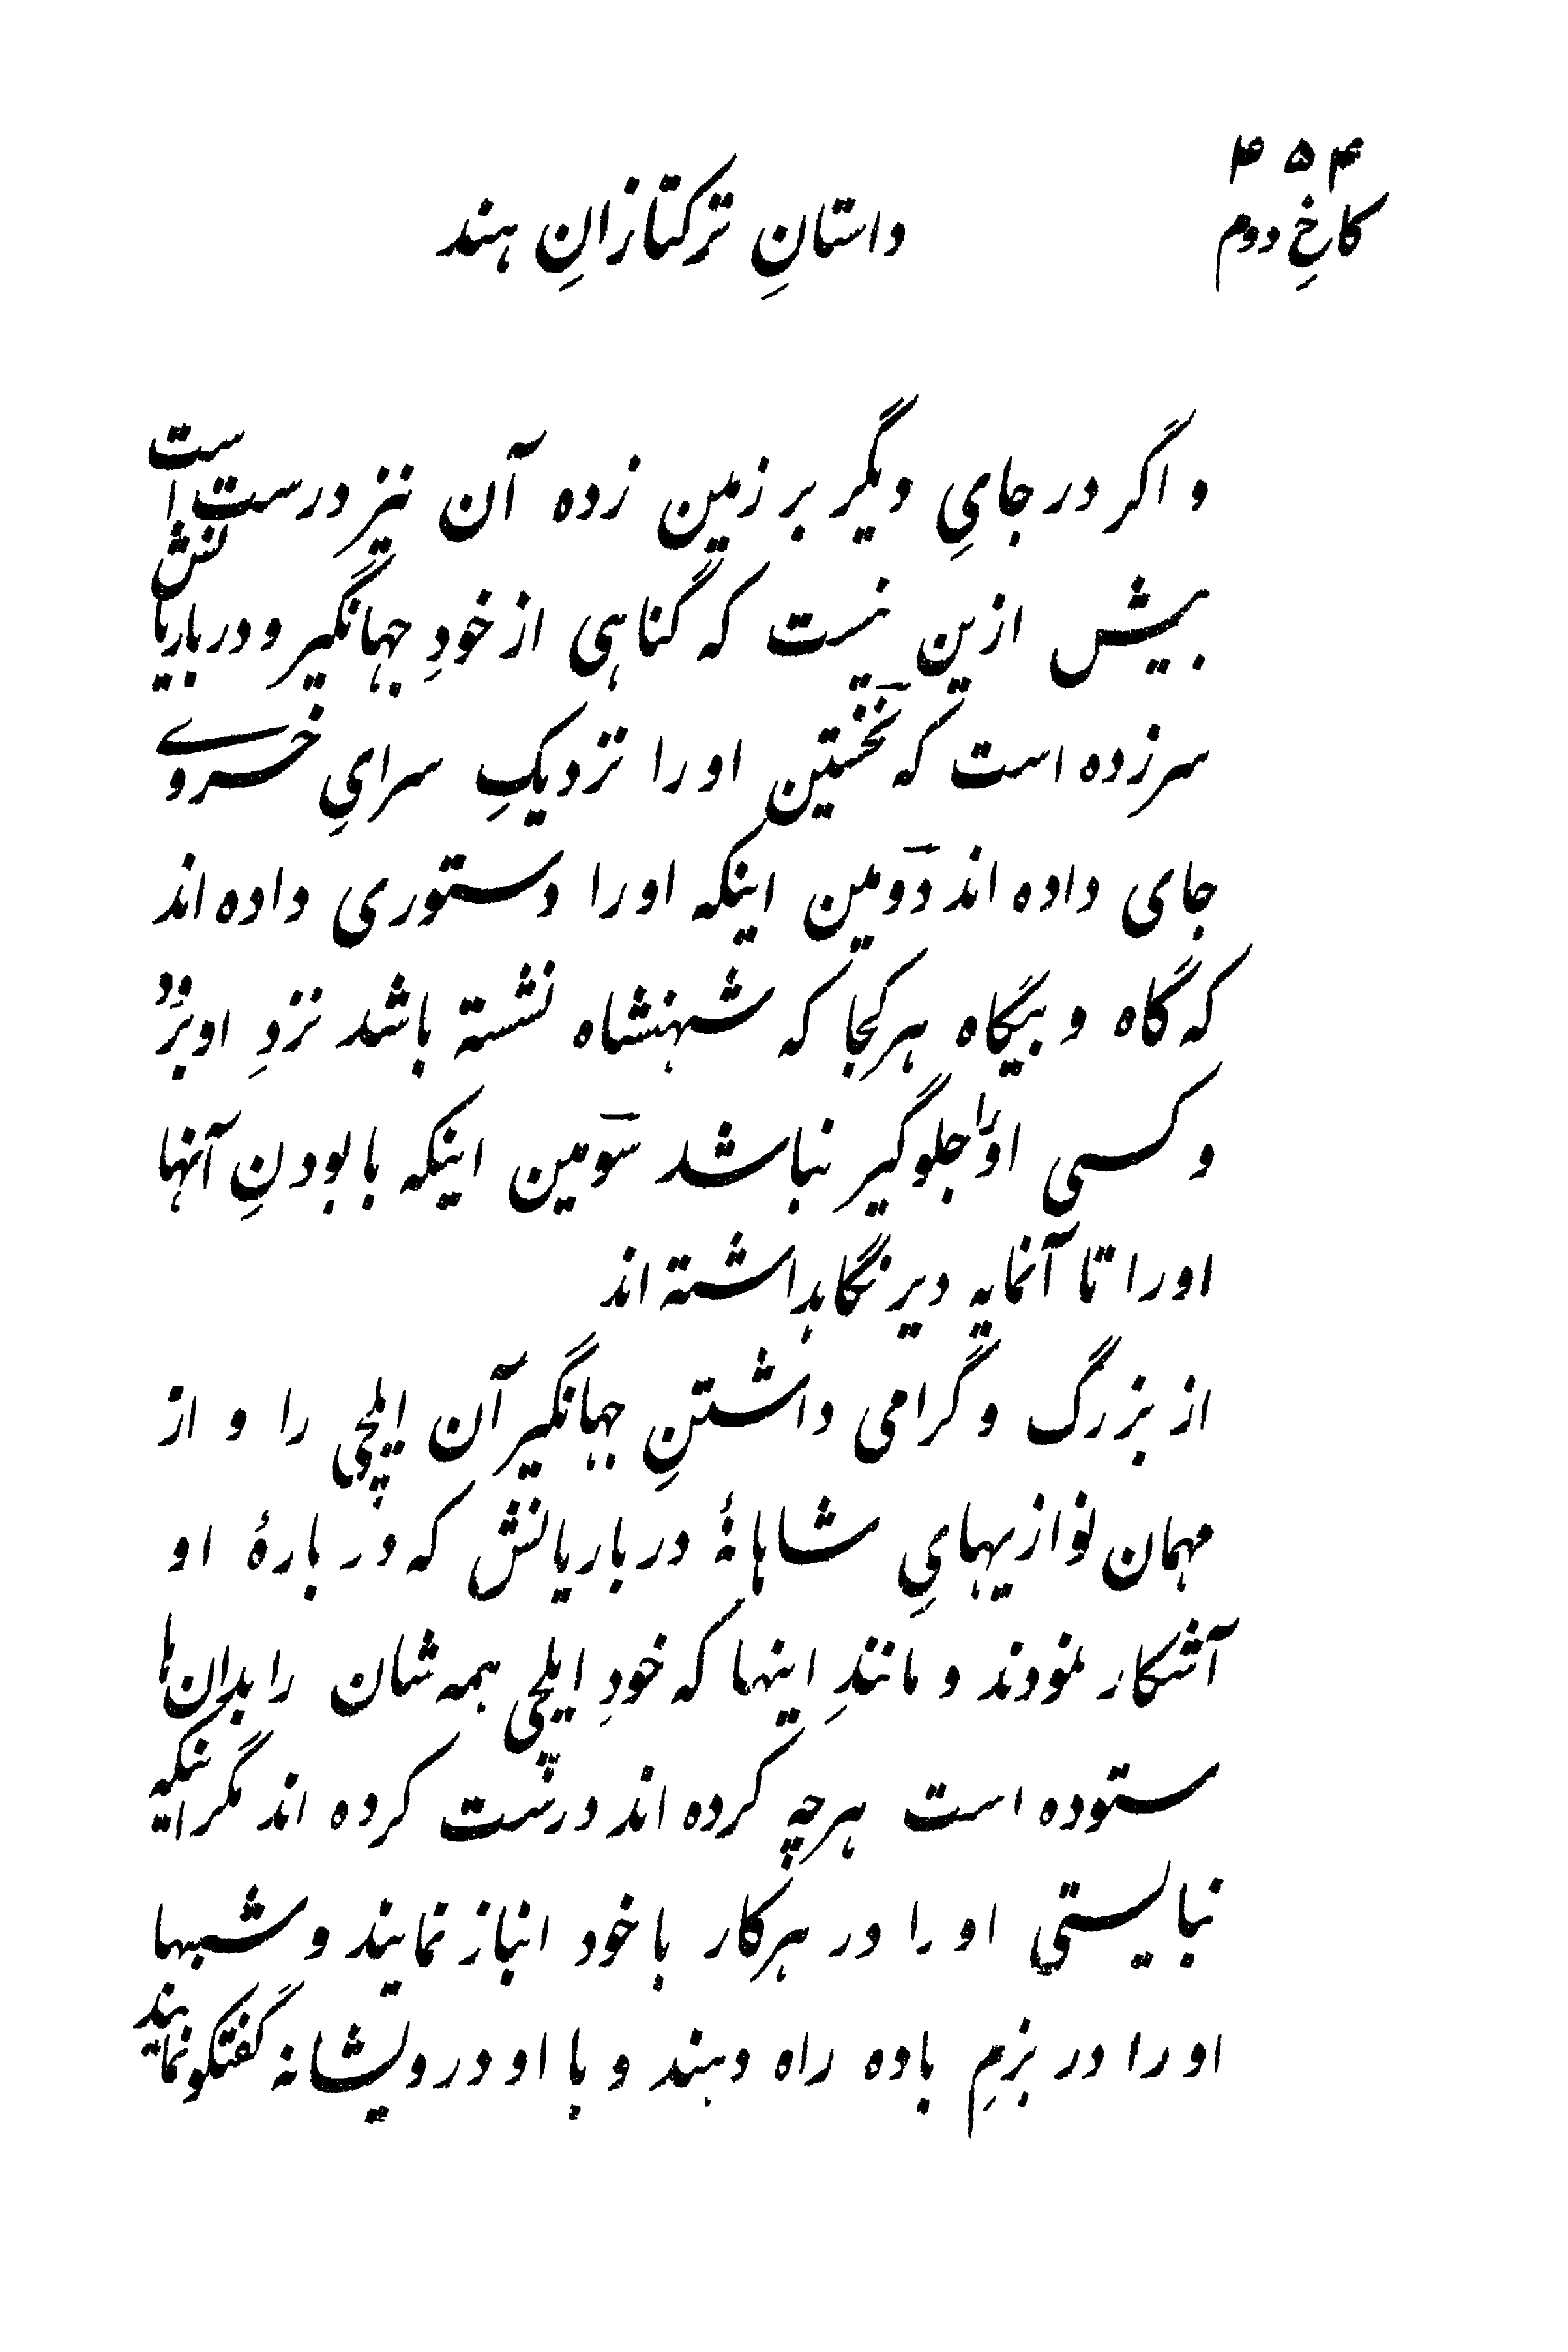 ۴۵۴
کاخِ دوم
داستانِ ترکتازانِ هند
و اگر در جایِ دیگر بر زمین زده آن نیز درست است
بیش ازین نیست که گناهی از خودِ جهانگیر و درباریانش
سرزده است که نخستین او را نزدیکِ سرایِ خسروے
جای داده اند دوّمین اینکه او را دستوری داده اند
که گاه و بیگاه هر کجا که شهنشاه نشسته باشد نزدِ او برَود
و کسی او را جلوگیر نباشد سوّمین اینکه با بودنِ آنها
او را تا آنمایه دیر نگاهداشته اند
از بزرگ و گرامی داشتنِ جهانگیر آن ایلچی را و از
مهمان نوازیهایِ شاهانهٔ درباریانش که در بارهٔ او
آشکار نمودند و مانندِ اینها که خودِ ایلچی همه شان را بدان‌ها
ستوده است هر چه کرده اند درست کرده اند مگر اینکه
نبایستی او را در هر کار با خود انباز نمایند و شبها
او را در بزمِ باده راه دهند و با او درویشانه گفتگو نمایند